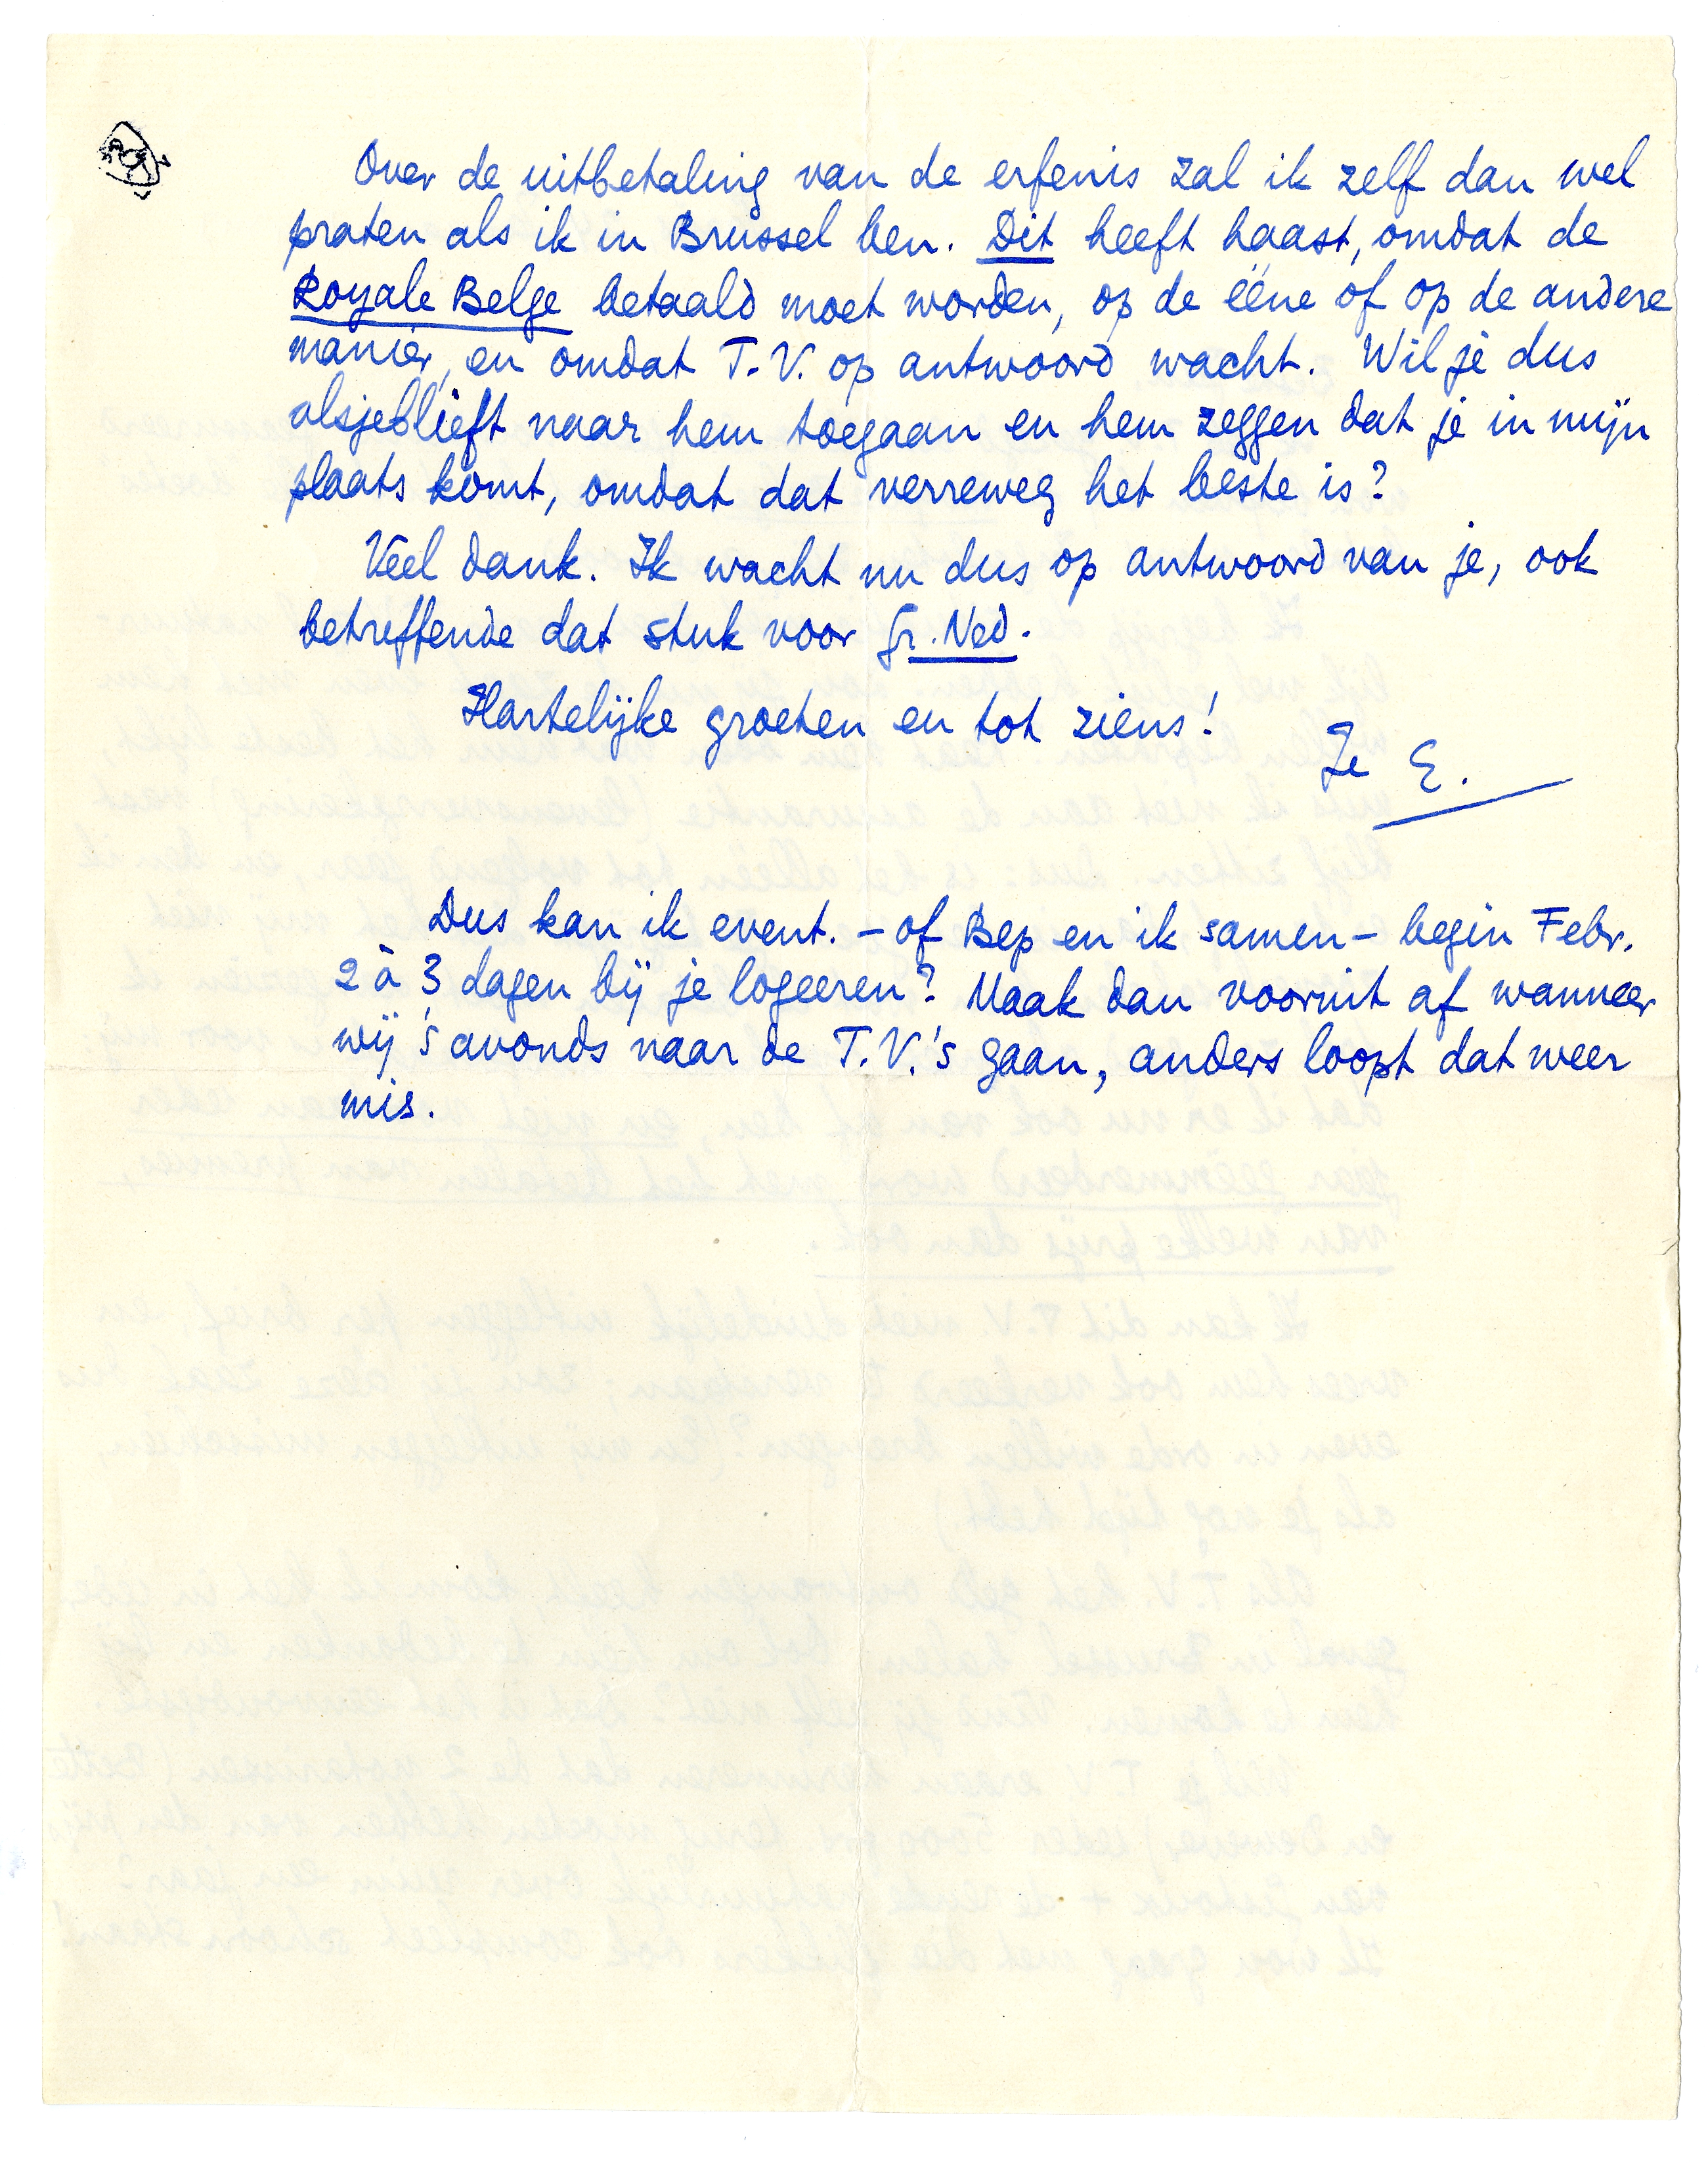 Over de uitbetaling van de erfenis zal ik zelf dan wel
praten als ik in Brussel ben. Dit heeft haast, omdat de
Royale Belge betaald moet worden, op de ééne of op de andere
manier, en omdat T.V. op antwoord wacht. Wil je dus
alsjeblieft naar hem toegaan en hem zeggen dat je in mijn
plaats komt, omdat dat verreweg het beste is?
Veel dank. Ik wacht nu dus op antwoord van je, ook
betreffende dat stuk voor Gr. Ned.
Hartelijke groeten en tot ziens!
Je E.
Dus kan ik event. – of Bep en ik samen – begin Febr.
2 à 3 dagen bij je logeeren? Maak dan vooruit af wanneer
wij 's avonds naar de T.V.'s gaan, anders loopt dat weer
mis.